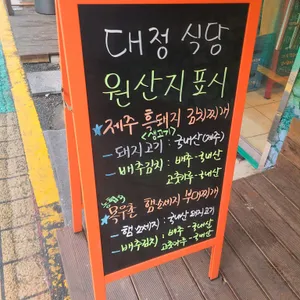 대정 식당
원산지 표시
제주 흑돼지 김치찌개
<생고기>
- 돼지고기 : 국내산 (제주)
- 배추김치 : 배추 - 국내산
고춧가루 - 국내산
목우촌 햄소세지 부대찌개
- 햄 소세지 : 국내산 돼지고기
- 배추김치 : 배추 - 국내산
고춧가루 - 국내산